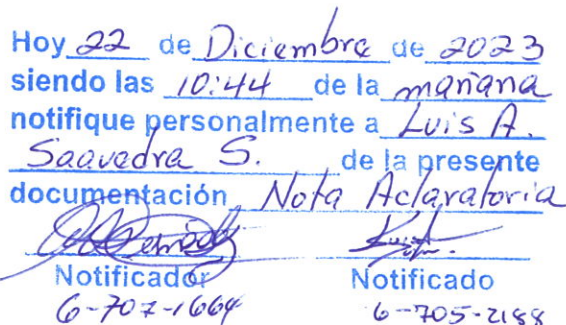 Hoy 22 de Diciembre de 2023
siendo las 10:44 de la mañana
notifique personalmente a Luis A.
Saavedra S. de la presente
documentación Nota Aclaratoria
Notificador Notificado
6-707-1664 6-705-2188